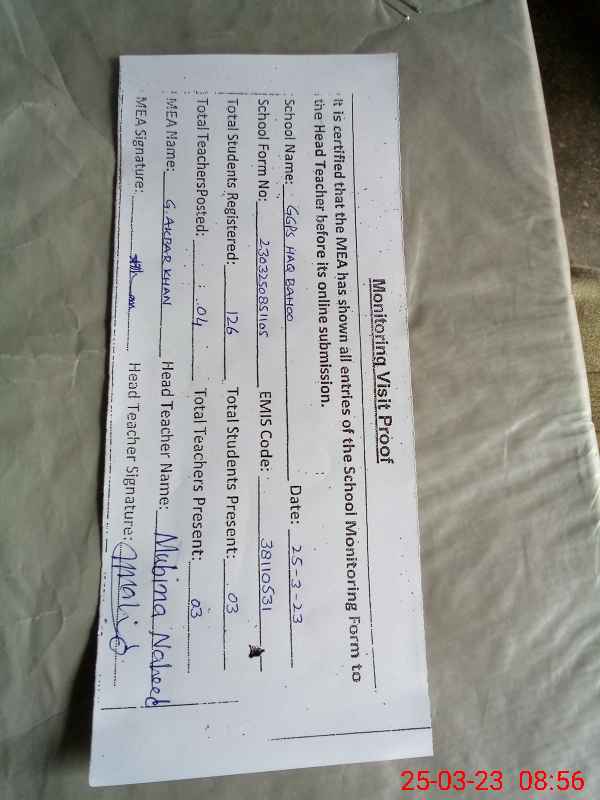 Monitoring Visit Proof
It is certified that the MEA has shown all entries of the School Monitoring Form to
the Head Teacher before its online submission.
School Name: GGPS HAQ BAHOO Date: 25-3-23
School Form No: 2303250851105 EMIS Code: 38110531
Total Students Registered: 126 Total Students Present: 03
Total TeachersPosted: 04 Total Teachers Present: 03
MEA Name: G. AKBAR KHAN Head Teacher Name: Mubima Naheed
MEA Signature: Head Teacher Signature:
25-03-23 08:56